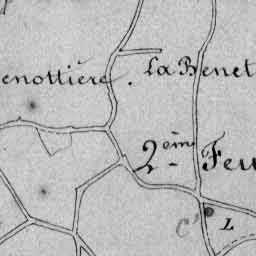 enottière. La Benet
2ème Feu
C
L